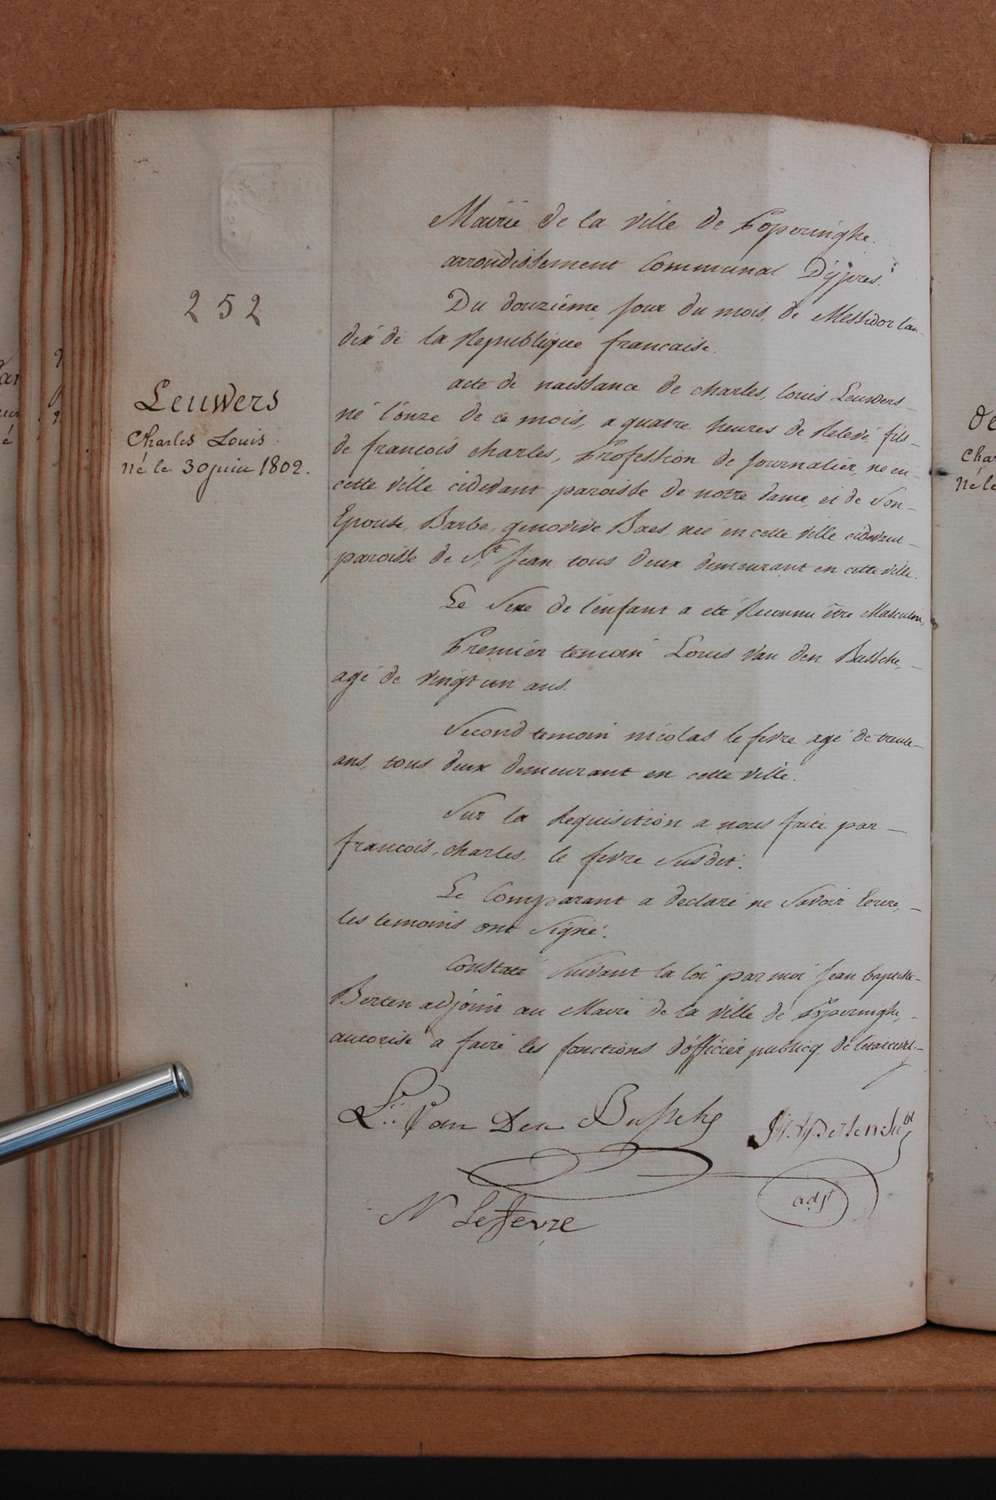 Mairie de la ville de Poperinghe.
arrondissement Communal D'ÿpres.
252
Du douziéme jour du mois de Messidor l'an
dix de la Republique francaise.
acte de naissance de charles, louis Leuwers
né l'onze de ce mois, a quatre heures de Relevé fils
de francois charles, Profession de Journalier, né en
cette ville cidevant paroisse de notre dame, et de Son
Epouse, Barbe genovive Baes, née en cette ville cidevant
paroisse de St Jean tous deux demeurant en cette ville.
Leuwers
Charles Louis
né le 30 juin 1802.
Le Sexe de l'enfant a eté Reconnu être Masculin,
Premier temoin Louis Van den Bussche,
agé de vingt un ans.
Second temoin nicolas le fevre agé de trente
ans, tous deux demeurant en cette ville.
Sur la Requisition a nous faite par
francois, charles, le fevre Susdit.
Le Comparant a declaré ne Savoir Ecrire,
les temoins ont Signé.
Constaté Suivant la loi par moi Jean baptiste
Berten adjoint au Maire de la ville de Poperinghe,
autorisé a faire les fonctions d'officier publicq de
L. Van Den Bussche
adjt
N Lefevre
De
Char
né le